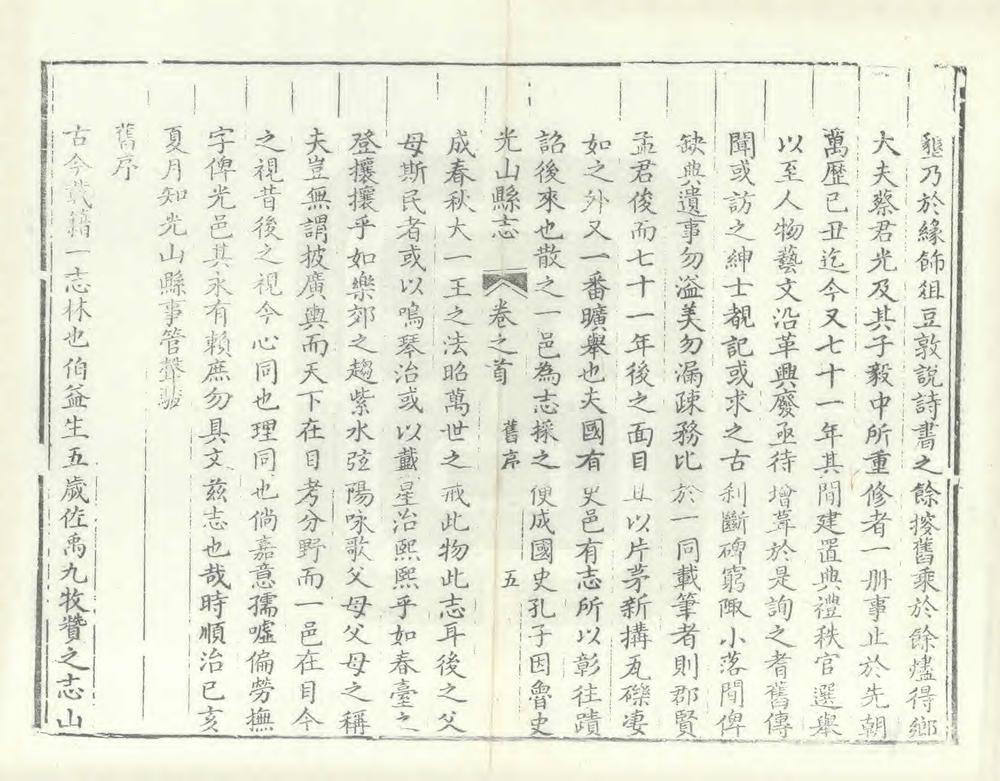 懇乃於緣飾俎豆敦説詩書之餘搜舊乘於餘燼得鄉
大夫蔡君光及其子毅中所重修者一册事止於先朝
萬歷己丑迄今又七十一年其間建置典禮秩官選舉
以至人物藝文沿革興廢亟待增葺於是詢之耆舊傳
聞或訪之紳士覩記或求之古刹斷碑窮陬小落間俾
缺典遺事勿溢美勿漏疎務比於一同載筆者則郡賢
孟君俊而七十一年後之面目且以片茅新搆瓦礫凄
如之外又一番曠舉也夫國有史邑有志所以彰往蹟
詔後來也散之一邑為志採之便成國史孔子因魯史
光山縣志 卷之首 舊序 五
成春秋大一王之法昭萬世之戒此物此志耳後之父
母斯民者或以鳴琴治或以戴星治熙熙乎如春臺之
登攘攘乎如樂郊之趨紫水弦陽咏歌父母父母之稱
夫豈無謂披廣輿而天下在目考分野而一邑在目今
之視昔後之視今心同也理同也倘嘉意孺噓偏勞撫
字俾光邑其永有賴庶勿具文兹志也哉時順治己亥
夏月知光山縣事管聲駿
舊序
古今載籍一志林也伯益生五歲佐禹九牧贊之志山